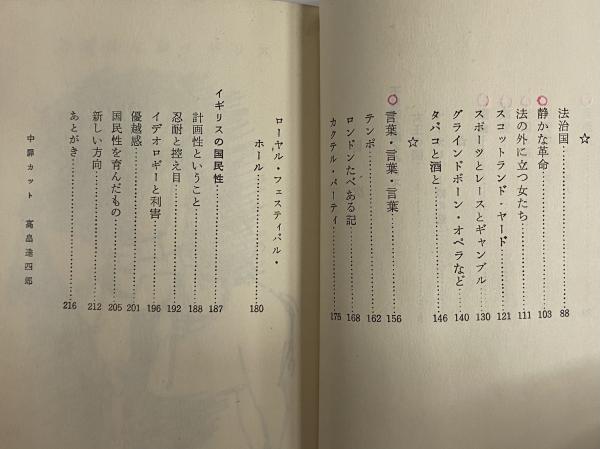 ☆
法治国 88
静かな革命 103
法の外に立つ女たち 111
スコットランド・ヤード 121
スポーツとレースとギャンブル 130
グラインドボーン・オペラなど 140
タバコと酒と 146
☆
言葉・言葉・言葉 156
テンポ 162
ロンドンたべある記 168
カクテル・パーティ 175
ローヤル・フェスティバル・
ホール 180
イギリスの国民性 187
計画性ということ 188
忍耐と控え目 192
イデオロギーと利害 196
優越感 201
国民性を育んだもの 205
新しい方向 212
あとがき 216
中扉カット 高畠達四郎